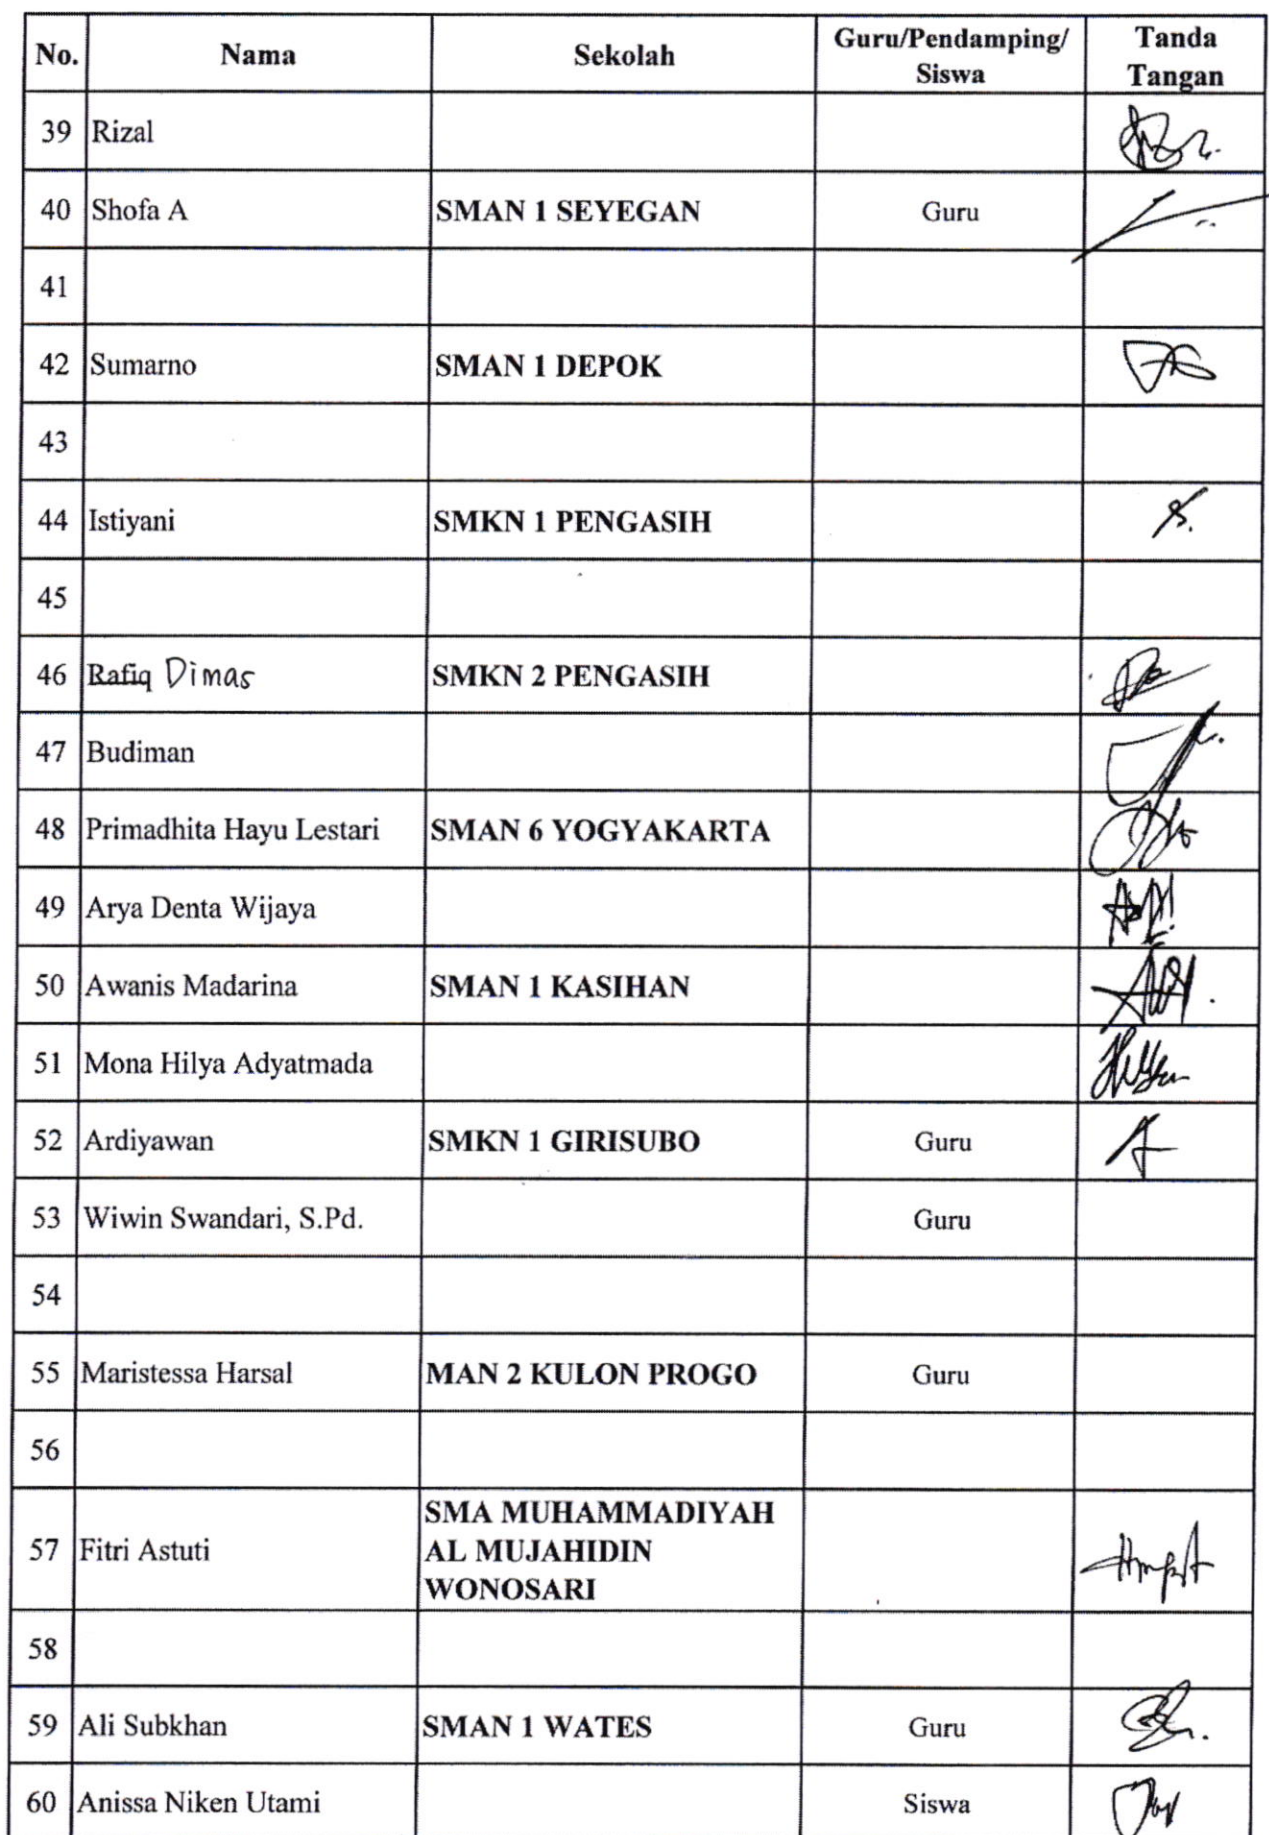 No. Nama Sekolah Guru/Pendamping/ Siswa Tanda Tangan
39 Rizal
40 Shofa A SMAN 1 SEYEGAN Guru
41
42 Sumarno SMAN 1 DEPOK
43
44 Istiyani SMKN 1 PENGASIH
45
46 Rafiq Dimas SMKN 2 PENGASIH
47 Budiman
48 Primadhita Hayu Lestari SMAN 6 YOGYAKARTA
49 Arya Denta Wijaya
50 Awanis Madarina SMAN 1 KASIHAN
51 Mona Hilya Adyatmada
52 Ardiyawan SMKN 1 GIRISUBO Guru
53 Wiwin Swandari, S.Pd. Guru
54
55 Maristessa Harsal MAN 2 KULON PROGO Guru
56
57 Fitri Astuti SMA MUHAMMADIYAH
AL MUJAHIDIN
WONOSARI
58
59 Ali Subkhan SMAN 1 WATES Guru
60 Anissa Niken Utami Siswa